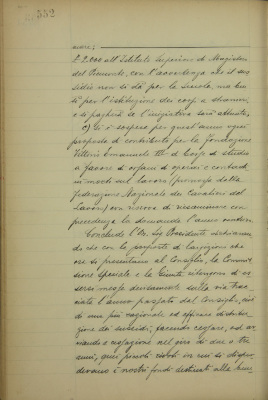 552
£ 2.000 all'Istituto Superiore di Magistero
del Piemonte, con l'avvertenza che il sus-
sidio non si dà per la scuola, ma
per l'istituzione dei corsi a stranieri,
e si pagherà se l'iniziativa sarà attuata;
c) Si è sospeso per quest'anno ogni
proposta di contributo per la fondazione
Vittorio Emanuele III di borse di studio
a favore di orfani di operai e contadi-
ni morti sul lavoro (promossa dalla
Federazione Nazionale dei Cavalieri del
Lavoro) con riserva di riesaminare con
precedenza la domanda l'anno venturo.
Conclude l'On. Sig. Presidente dichiaran-
do che con le proposte di largizioni che
ora si presentano al Consiglio, la Commis-
sione Speciale e la Giunta ritengono di es-
sersi messe decisamente sulla via trac-
ciata l'anno passato dal Consiglio, cioè
di una più razionale ed efficace distribu-
zione dei sussidi, facendo cessare, od av-
viando a cessazione nel giro di due o tre
anni, quei piccoli rivoli in cui si disper-
devano i nostri fondi destinati alla